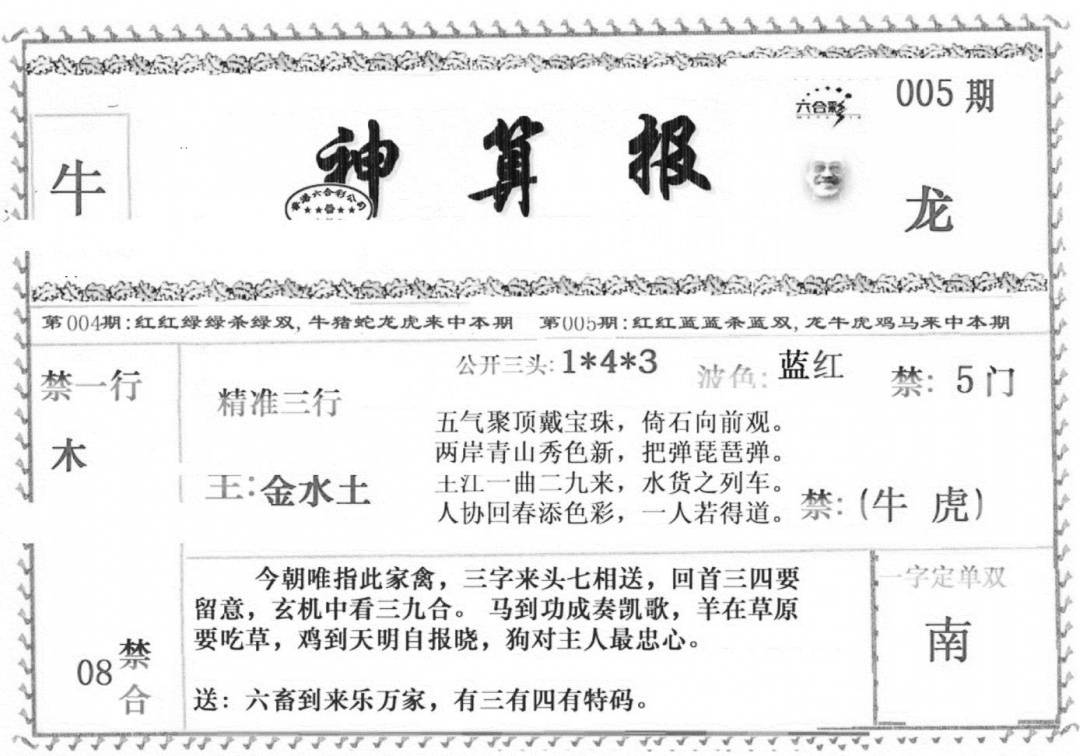 005期
六合彩
神算报
香港六合彩公司
牛
龙
第004期:红红绿绿杀绿双,牛猪蛇龙虎来中本期 第005期:红红蓝蓝杀蓝双,龙牛虎鸡马来中本期
禁一行
木
精准三行
王:金水土
公开三头:1*4*3 波色:蓝红 禁:5门
五气聚顶戴宝珠，倚石向前观。
两岸青山秀色新，把弹琵琶弹。
土江一曲二九来，水货之列车。
人协回春添色彩，一人若得道。
禁:(牛 虎)
今朝唯指此家禽，三字来头七相送，回首三四要
留意，玄机中看三九合。 马到功成奏凯歌，羊在草原
要吃草，鸡到天明自报晓，狗对主人最忠心。
送：六畜到来乐万家，有三有四有特码。
08禁合
一字定单双
南